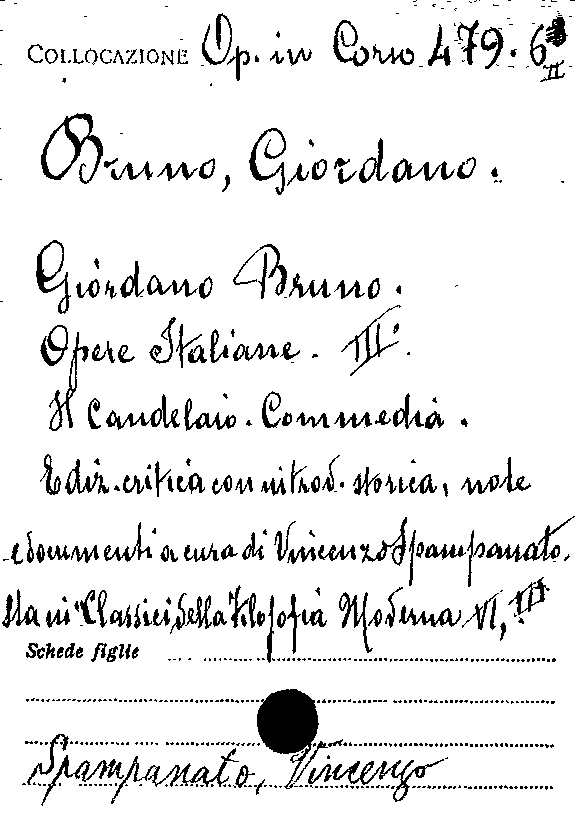 COLLOCAZIONE Op. in Corso 479. 6
II
Bruno, Giordano.
Giordano Bruno.
Opere Italiane. III.
Il Candelaio. Commedia.
Ediz. critica con introd. storica, note
e documenti a cura di Vincenzo Spampanato.
Sta in "Classici della Filosofia Moderna VI, III
Schede figlie
Spampanato, Vincenzo